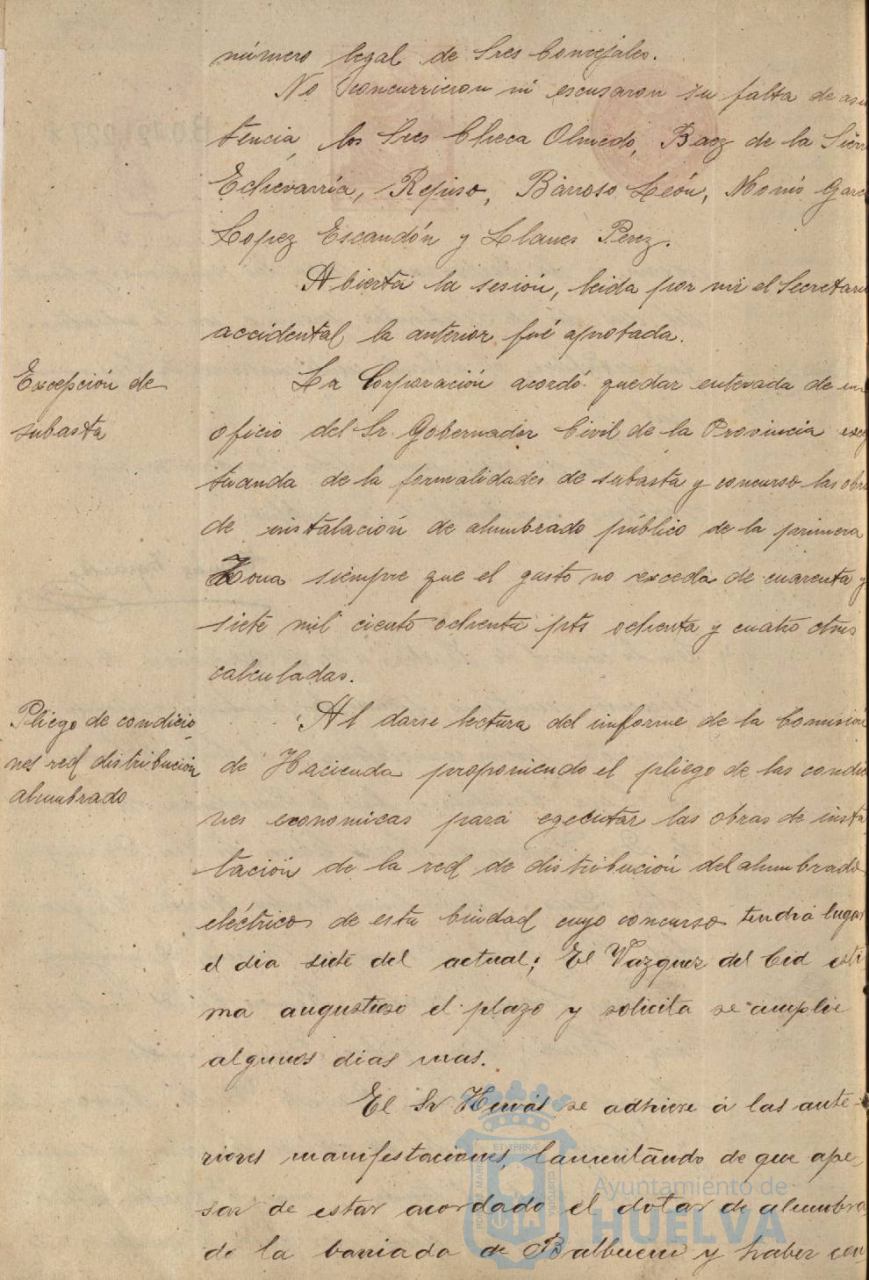 número legal de Sres Concejales.
No concurrieron ni escusaron su falta de asis
tencia, los Sres Checa Olmedo, Baez de la Sierra
Echevarría, Repiso, Barroso León, Monis Garc
Lopez Escandón y Llanes Perez.
Abierta la sesión, leida por mi el Secretario
accidental la anterior fué aprobada.
Excepción de
subasta
La Corporación acordó quedar enterada de un
oficio del Sr. Gobernador Civil de la Provincia excep
tuanda de la formalidades de subasta y concurso las obra
de instalación de alumbrado público de la primera
Zona siempre que el gasto no exceda de cuarenta y
siete mil ciento ochenta pts ochenta y cuatro ctms
calculadas.
Pliego de condicio
nes red distribución
alumbrado
Al darse lectura del informe de la Comisión
de Hacienda proponiendo el pliego de las condicio
nes economicas para egecutar las obras de insta
lación de la red de distribución del alumbrado
eléctrico de esta Ciudad cuyo concurso tendrá lugar
el dia siete del actual; El Vazquez del Cid esti
ma augustioso el plazo y solicita se amplie
algunos dias mas.
El Sr Hervás se adhiere á las ante-
riores manifestaciones, lamentando de que ape-
sar de estar acordado el dotar de alumbra
do la barriada de Balbuena y haber con
Ayuntamiento de
HUELVA